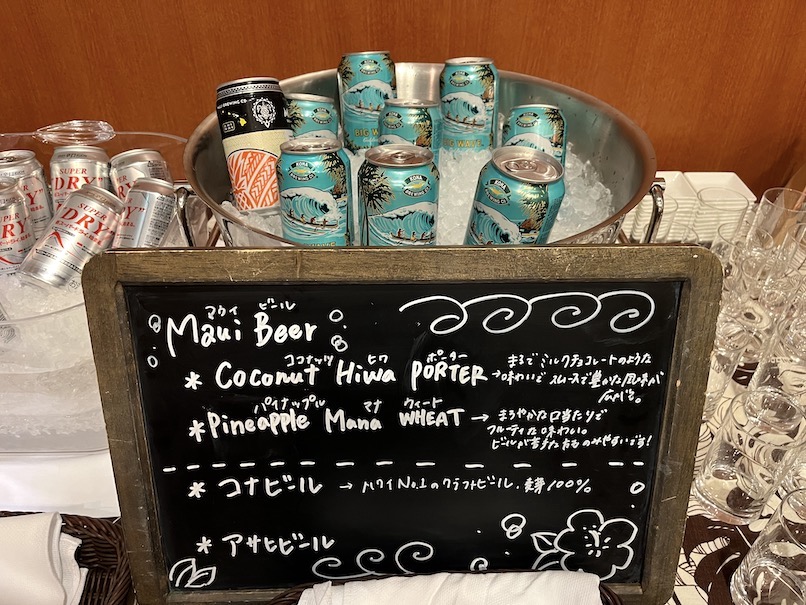 SUPER
"DRY"
SUPER
"DRY"
BREWING CO.
KONA
BREWING CO.
BIG WAVE
マウイ ビール
Maui Beer
ココナッツ ヒワ ポーター
* Coconut Hiwa PORTER
→ まるでミルクチョコレートのような
味わいでスムースで豊かな風味が
広がる。
パイナップル マナ ウィート
* Pineapple Mana WHEAT
→ まろやかな口当たりで
フルーティな味わい。
ビールが苦手な方ものみやすいです!
* コナビール → ハワイNo.1のクラフトビール. 麦芽100%
* アサヒビール